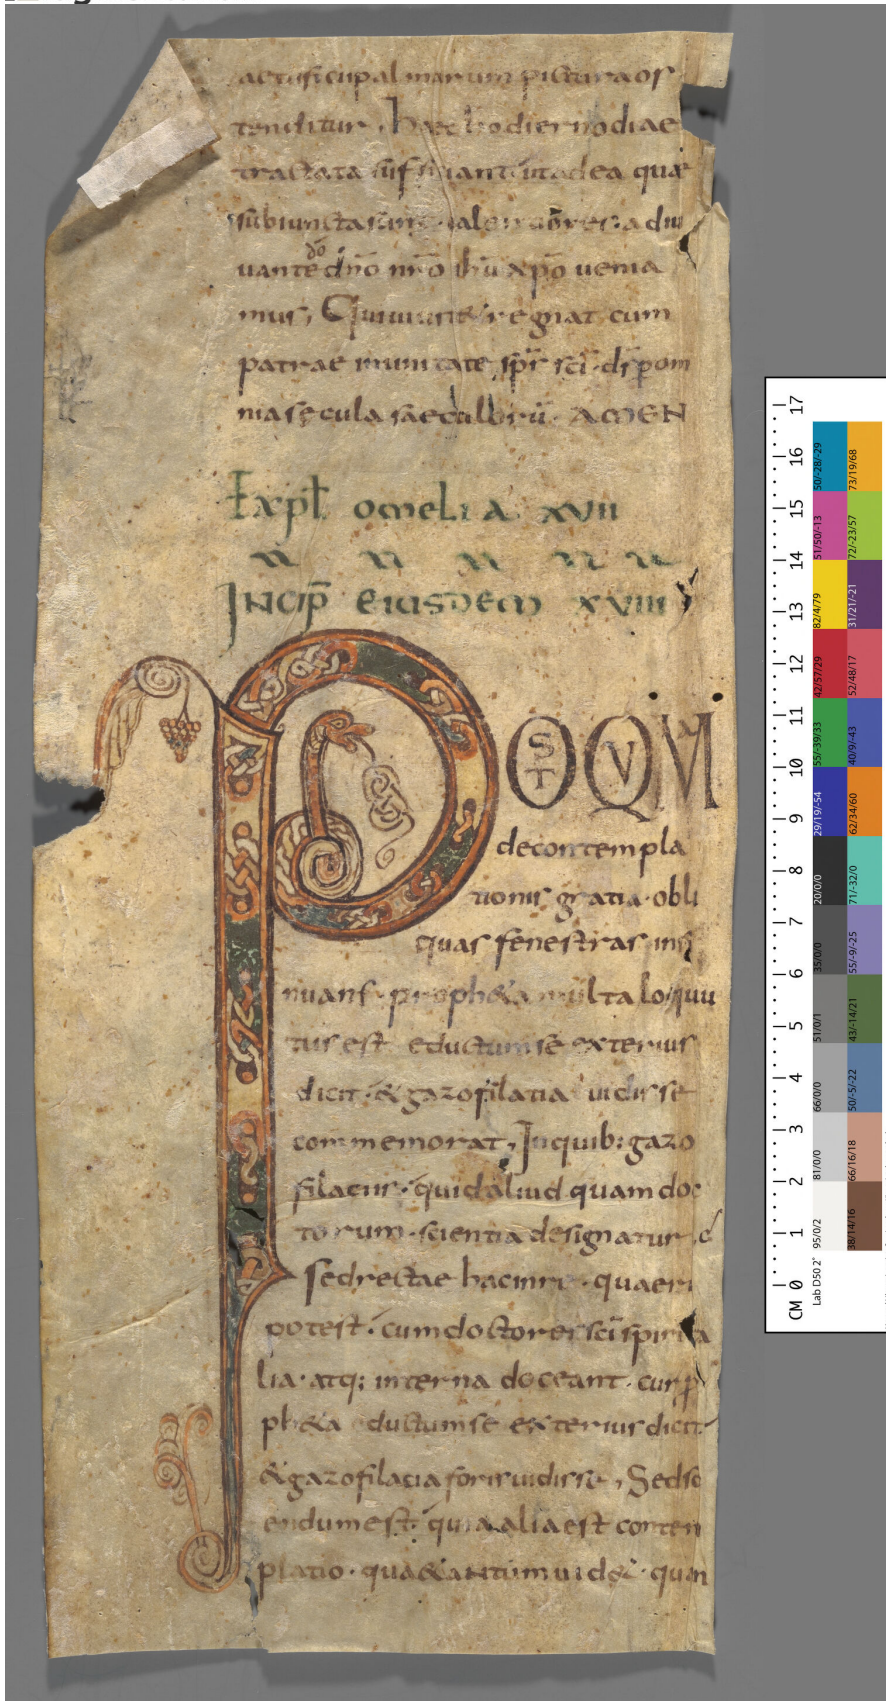 actus(icut palmarum pictura os
tenditur, haec hodierno diae
tractata sufficiant ut ad ea quae
subiuncta sunt ualentiores adiu
uante dō dn̄o nr̄o ih̄u xp̄o uenia
mus, Qui uiuit & regnat cum
patrae in unitate sp̄s sc̄i d̄s p̄ om
nia secula saeculorū. AMEN
Expł omelia XVII
INCIP̄ EIUSDEM XVIII
POSTQUAM
de contempla
tionis gratia obli
quas fenestras insi
nuans proph&a multa loquu
tus est eductum se exterius
dicit & gazofilatia uidisse
commemorat, In quib: gazo
filaciis quid aliud quam doc
torum scientia designatur
sed rectae hac in re quaeri
potest cum doctores sc̄i spirita
lia atq; interna doceant cur p̄
ph&a eductum se exterius dicit
& gazofilacia foris uidisse, Sed sci
endum est quia alia est contem
platio quae & antum uid& quan
CM 0 1 2 3 4 5 6 7 8 9 10 11 12 13 14 15 16 17
Lab D50 2°
95/0/2
81/0/0
66/0/0
51/0/1
35/0/0
20/0/0
29/19/-54
55/-39/33
42/57/29
82/4/79
51/50/-13
50/-28/-29
38/14/16
66/16/18
50/-5/-22
43/-14/21
55/-9/-25
71/-32/0
62/34/60
40/9/-43
52/48/17
31/21/-21
72/-23/57
73/19/68